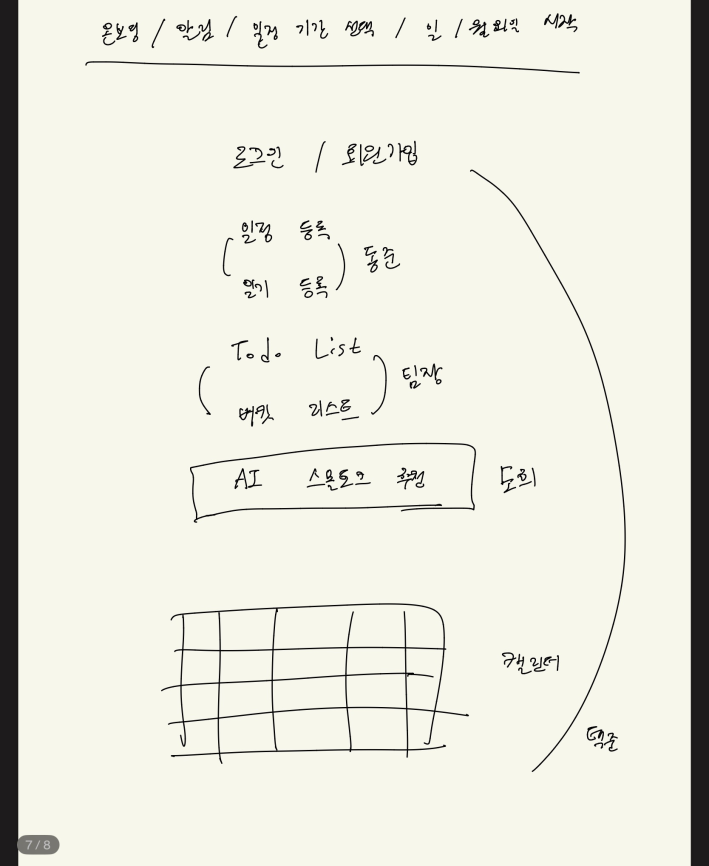 온보딩 / 알림 / 일정 기간 선택 / 일 / 월요일 시작
로그인 / 회원가입
일정 등록
동준
일기 등록
Todo List
팀장
버킷 리스트
AI 스몰토크 추천
도희
캘린더
택준
7/8